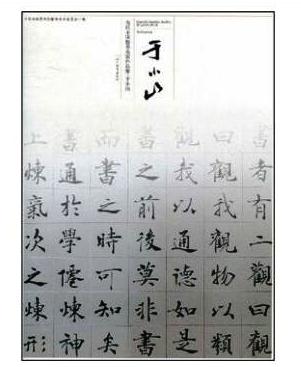 于小山
書者有二觀曰觀
曰觀我觀物以類
觀我以通德如是
書之前後莫非書
而書之時可知矣
書通於學僊煉神
上煉氣次之煉形